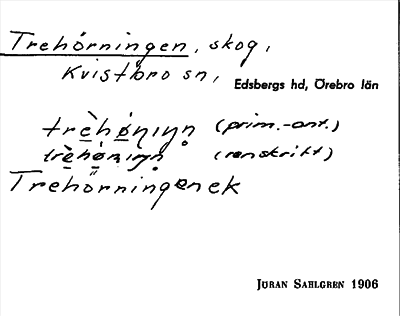 Trehörningen, skog,
Kvistbro sn,
Edsbergs hd, Örebro län
(prim.-ant.)
(renskrift)
Trehörningenek
JÖRAN SAHLGREN 1906